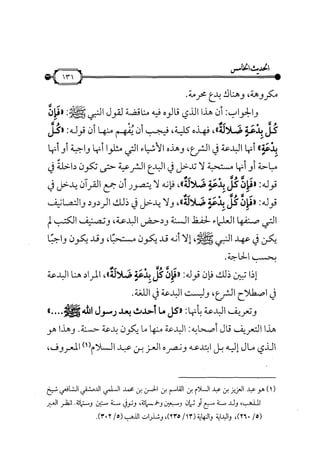 الحديث الخامس
١٣١
مكروهة، وهناك بدع محرمة.
والجواب: أن هذا الذي قالوه فيه مناقضة لقول النبي ﷺ: «فَإِنَّ
كُلَّ بِدْعَةٍ ضَلالَةٌ»، فهذه كلية، فيجب أن يُفهم منها أن قوله: «كُلَّ
بِدْعَةٍ» أنها البدعة في الشرع، وهذه الأشياء التي مثلوا أنها واجبة أو أنها
مباحة أو أنها مستحبة لا تدخل في البدع الشرعية حتى تكون داخلةً في
قوله: «فَإِنَّ كُلَّ بِدْعَةٍ ضَلالَةٌ»، فإنه لا يتصور أن جمع القرآن يدخل في
قوله: «فَإِنَّ كُلَّ بِدْعَةٍ ضَلالَةٌ»، ولا يدخل في ذلك الردود والتصانيف
التي صنفها العلماء لحفظ السنة ودحض البدعة، وتصنيف الكتب لم
يكن في عهد النبي ﷺ، إلا أنه قد يكون مستحبًا، وقد يكون واجبًا
بحسب الحاجة.
إذا تبين ذلك فإن قوله: «فَإِنَّ كُلَّ بِدْعَةٍ ضَلالَةٌ»، المراد هنا البدعة
في اصطلاح الشرع، وليست البدعة في اللغة.
وتعريف البدعة بأنها: «كل ما أحدث بعد رسول الله ﷺ ....»
هذا التعريف قال أصحابه: البدعة منها ما يكون بدعة حسنة. وهذا هو
الذي مال إليه بل ابتدعه ونصره العز بن عبد السلام(١) المعروف،
(١) هو عبد العزيز بن عبد السلام بن القاسم بن الحسن بن محمد السلمي الدمشقي الشافعي شيخ
المذهب، ولد سنة سبع أو ثمان وسبعين وخمسمائة، وتوفي سنة ستين وستمائة. انظر العبر
(٥/ ٢٦٠)، والبداية والنهاية (١٣/ ٢٣٥)، وشذرات الذهب (٥/ ٣٠٢).